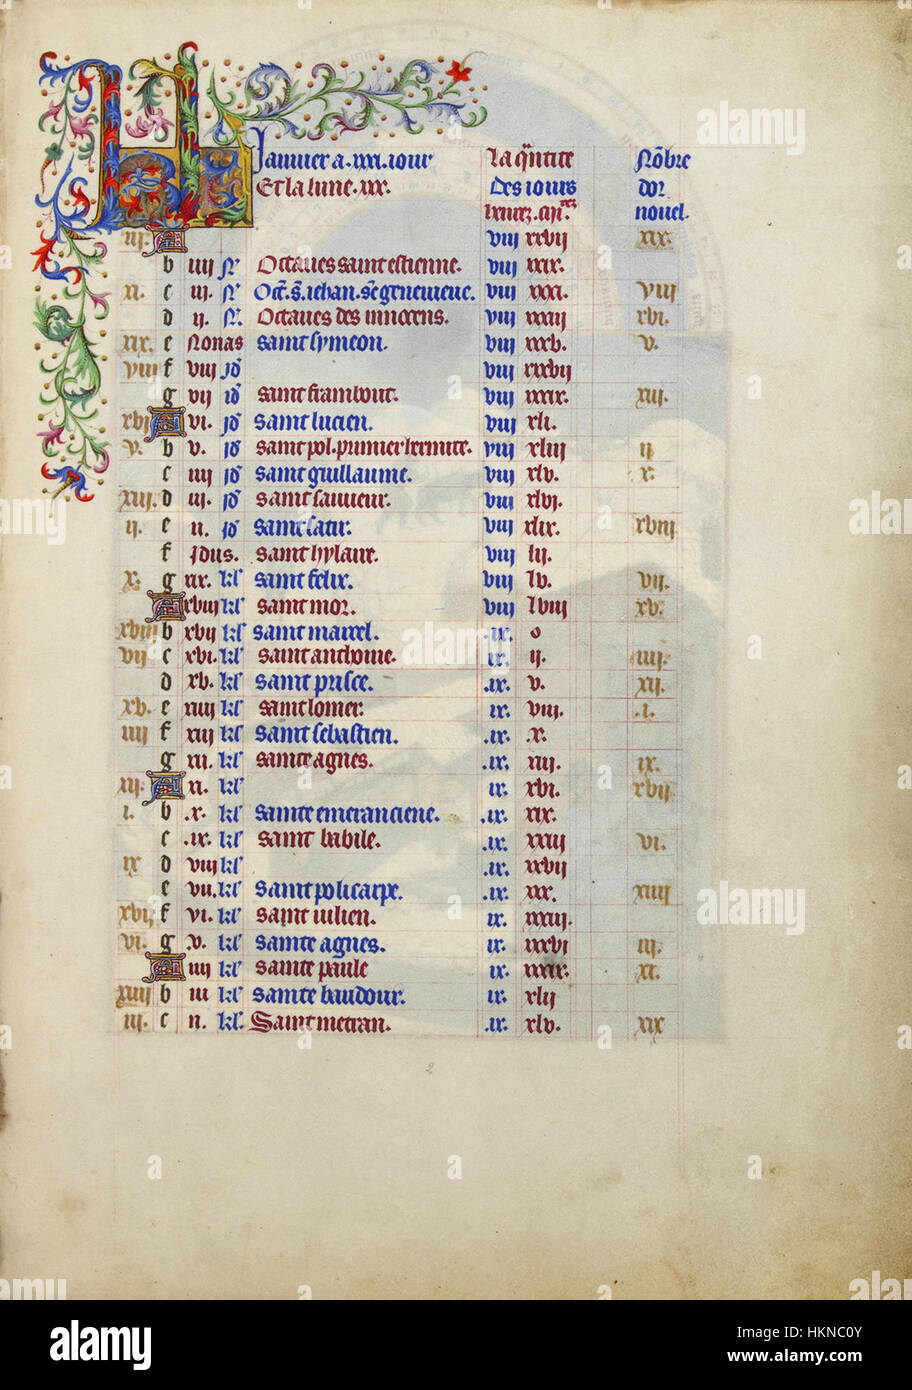 KL Janvier a .xxxi. iour La q̃ntite Nõbre
Et la lune .xxx. des iours dor
heures. m̃. nouel.
iij. A viij xxvij xix.
b iiij N̄. Octaues saint estienne. viij xxix.
xi. c iij. N̄. Oct̄. s. iehan. sc̄e geneuieue. viij xxxi. viij
d ij. N̄. Octaues des innocens. viij xxxiij xvi.
xix. e Nonas saint symeon. viij xxxv. v.
viij f viij jd̄ viij xxxvij
g vij jd̄ saint frambout. viij xxxix. xiij.
xvi A vi. jd̄ saint lucien. viij xli. ij
v. b v. jd̄ saint pol. prumier hermite. viij xliij ij
c iiij jd̄ saint guillaume. viij xlv. x.
xiij. d iij. jd̄ saint sauueur. viij xlvj.
ij. e ij. jd̄ saint satir. viij xlix. xviij
f jdus. saint hylaire. viij lij.
x. g xix. kl̄ saint felix. viij lv. vij.
A xviij kl̄ saint mor. viij lviij xv.
xviij b xvij kl̄ saint marcel. .ix. o
vij c xvi. kl̄ saint anthoine. ix. ij. iiij.
d xv. kl̄ saint prisce. .ix. v. xij.
xv. e xiiij kl̄ saint lomer. ix. viij. .i.
iiij f xiij kl̄ saint sebastien. .ix. .x.
g xij. kl̄ sainte agnes. .ix. xiij. ix.
xij. A xi. kl̄ ix. xvi. xvij
i. b .x. kl̄ sainte emeranciene. .ix. xix.
c .ix. kl̄ saint babile. .ix. xxiij vi.
ix d viij kl̄ .ix. xxvij
e vij. kl̄ saint policarpe. .ix. xxx. xiiij
xvi. f vi. kl̄ saint iulien. ix. xxxiij.
vi. g v. kl̄ sainte agnes. ix. xxxvi iij.
A iiij kl̄ sainte paule ix. xxxix. xi.
xiiij b iij kl̄ sainte baudour. ix. xlij
iij. c ij. kl̄. Saint metran. .ix. xlv. xix
2
alamy
Image ID: HKNC0Y
www.alamy.com